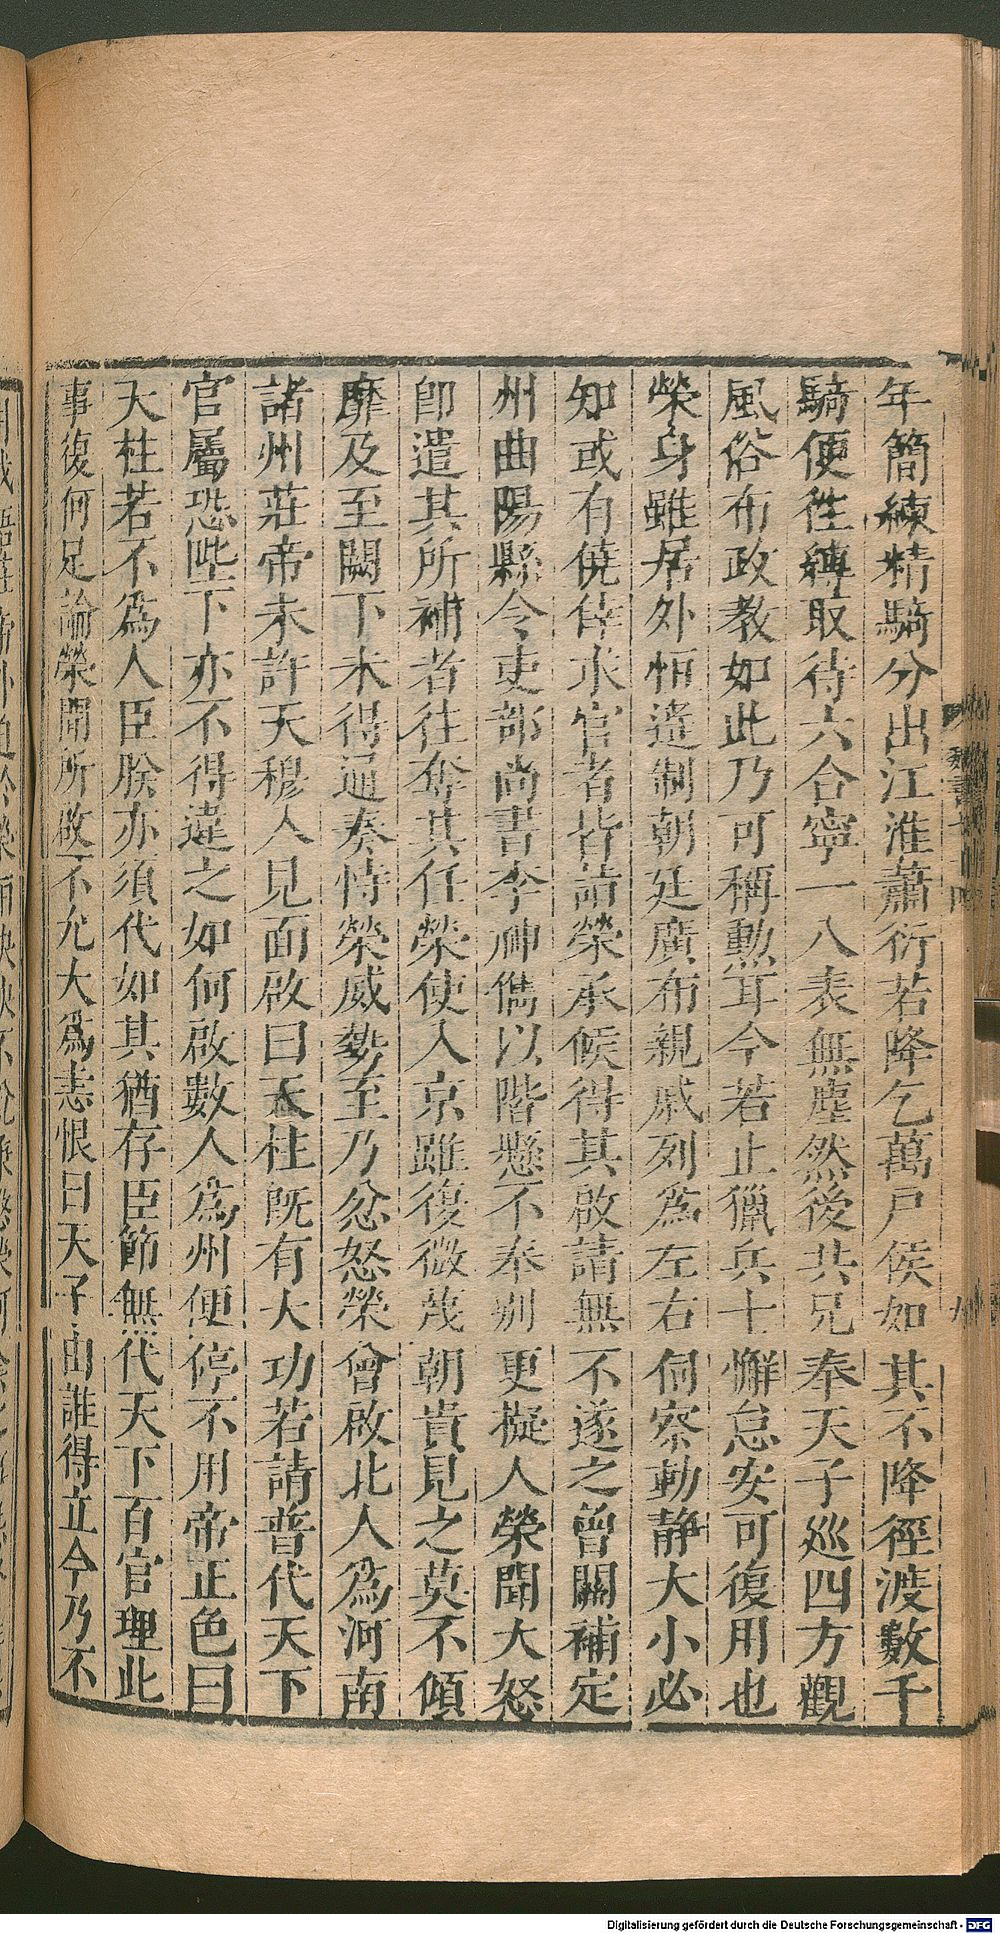 年簡練精騎分出江淮蕭衍若降乞萬戶侯如其不降徑渡數千
騎便徃縛取待六合寧一八表無塵然後共兄奉天子廵四方觀
風俗布政教如此乃可稱勳耳今若止獵兵士懈怠安可復用也
榮身雖居外恒遙制朝廷廣布親戚列爲左右伺察動静大小必
知或有僥倖求官者皆詣榮承候得其啟請無不遂之曾關補定
州曲陽縣令吏部尚書李神儁以階懸不奉别更擬人榮聞大怒
卽遣其所補者往奪其任榮使入京雖復微蔑朝貴見之莫不傾
靡及至闕下未得通奏恃榮威勢至乃忿怒榮曾啟北人爲河南
諸州莊帝未許天穆入見面啟曰天柱旣有大功若請普代天下
官屬恐陛下亦不得違之如何啟數人爲州便停不用帝正色曰
天柱若不爲人臣朕亦須代如其猶存臣節無代天下百官理此
事復何足論榮聞所啟不允大爲恚恨曰天子由誰得立今乃不
Digitalisierung gefördert durch die Deutsche Forschungsgemeinschaft - DFG